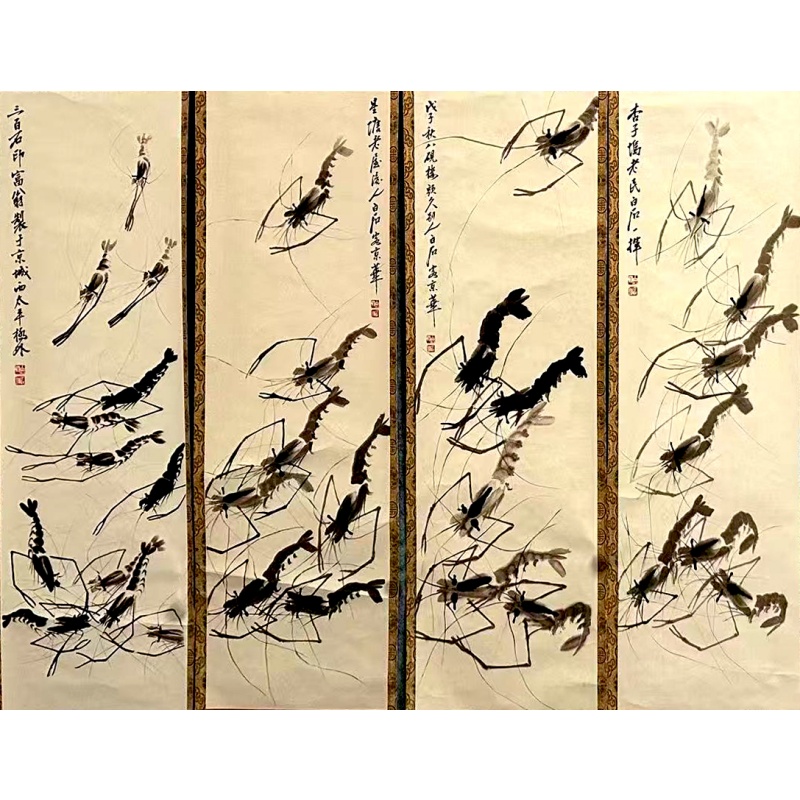 三百石印富翁製于京城西太平橋外
星塘老屋後人白石客京華
戊子秋八硯樓頭久別人白石客京華
杏子塢老民白石一揮